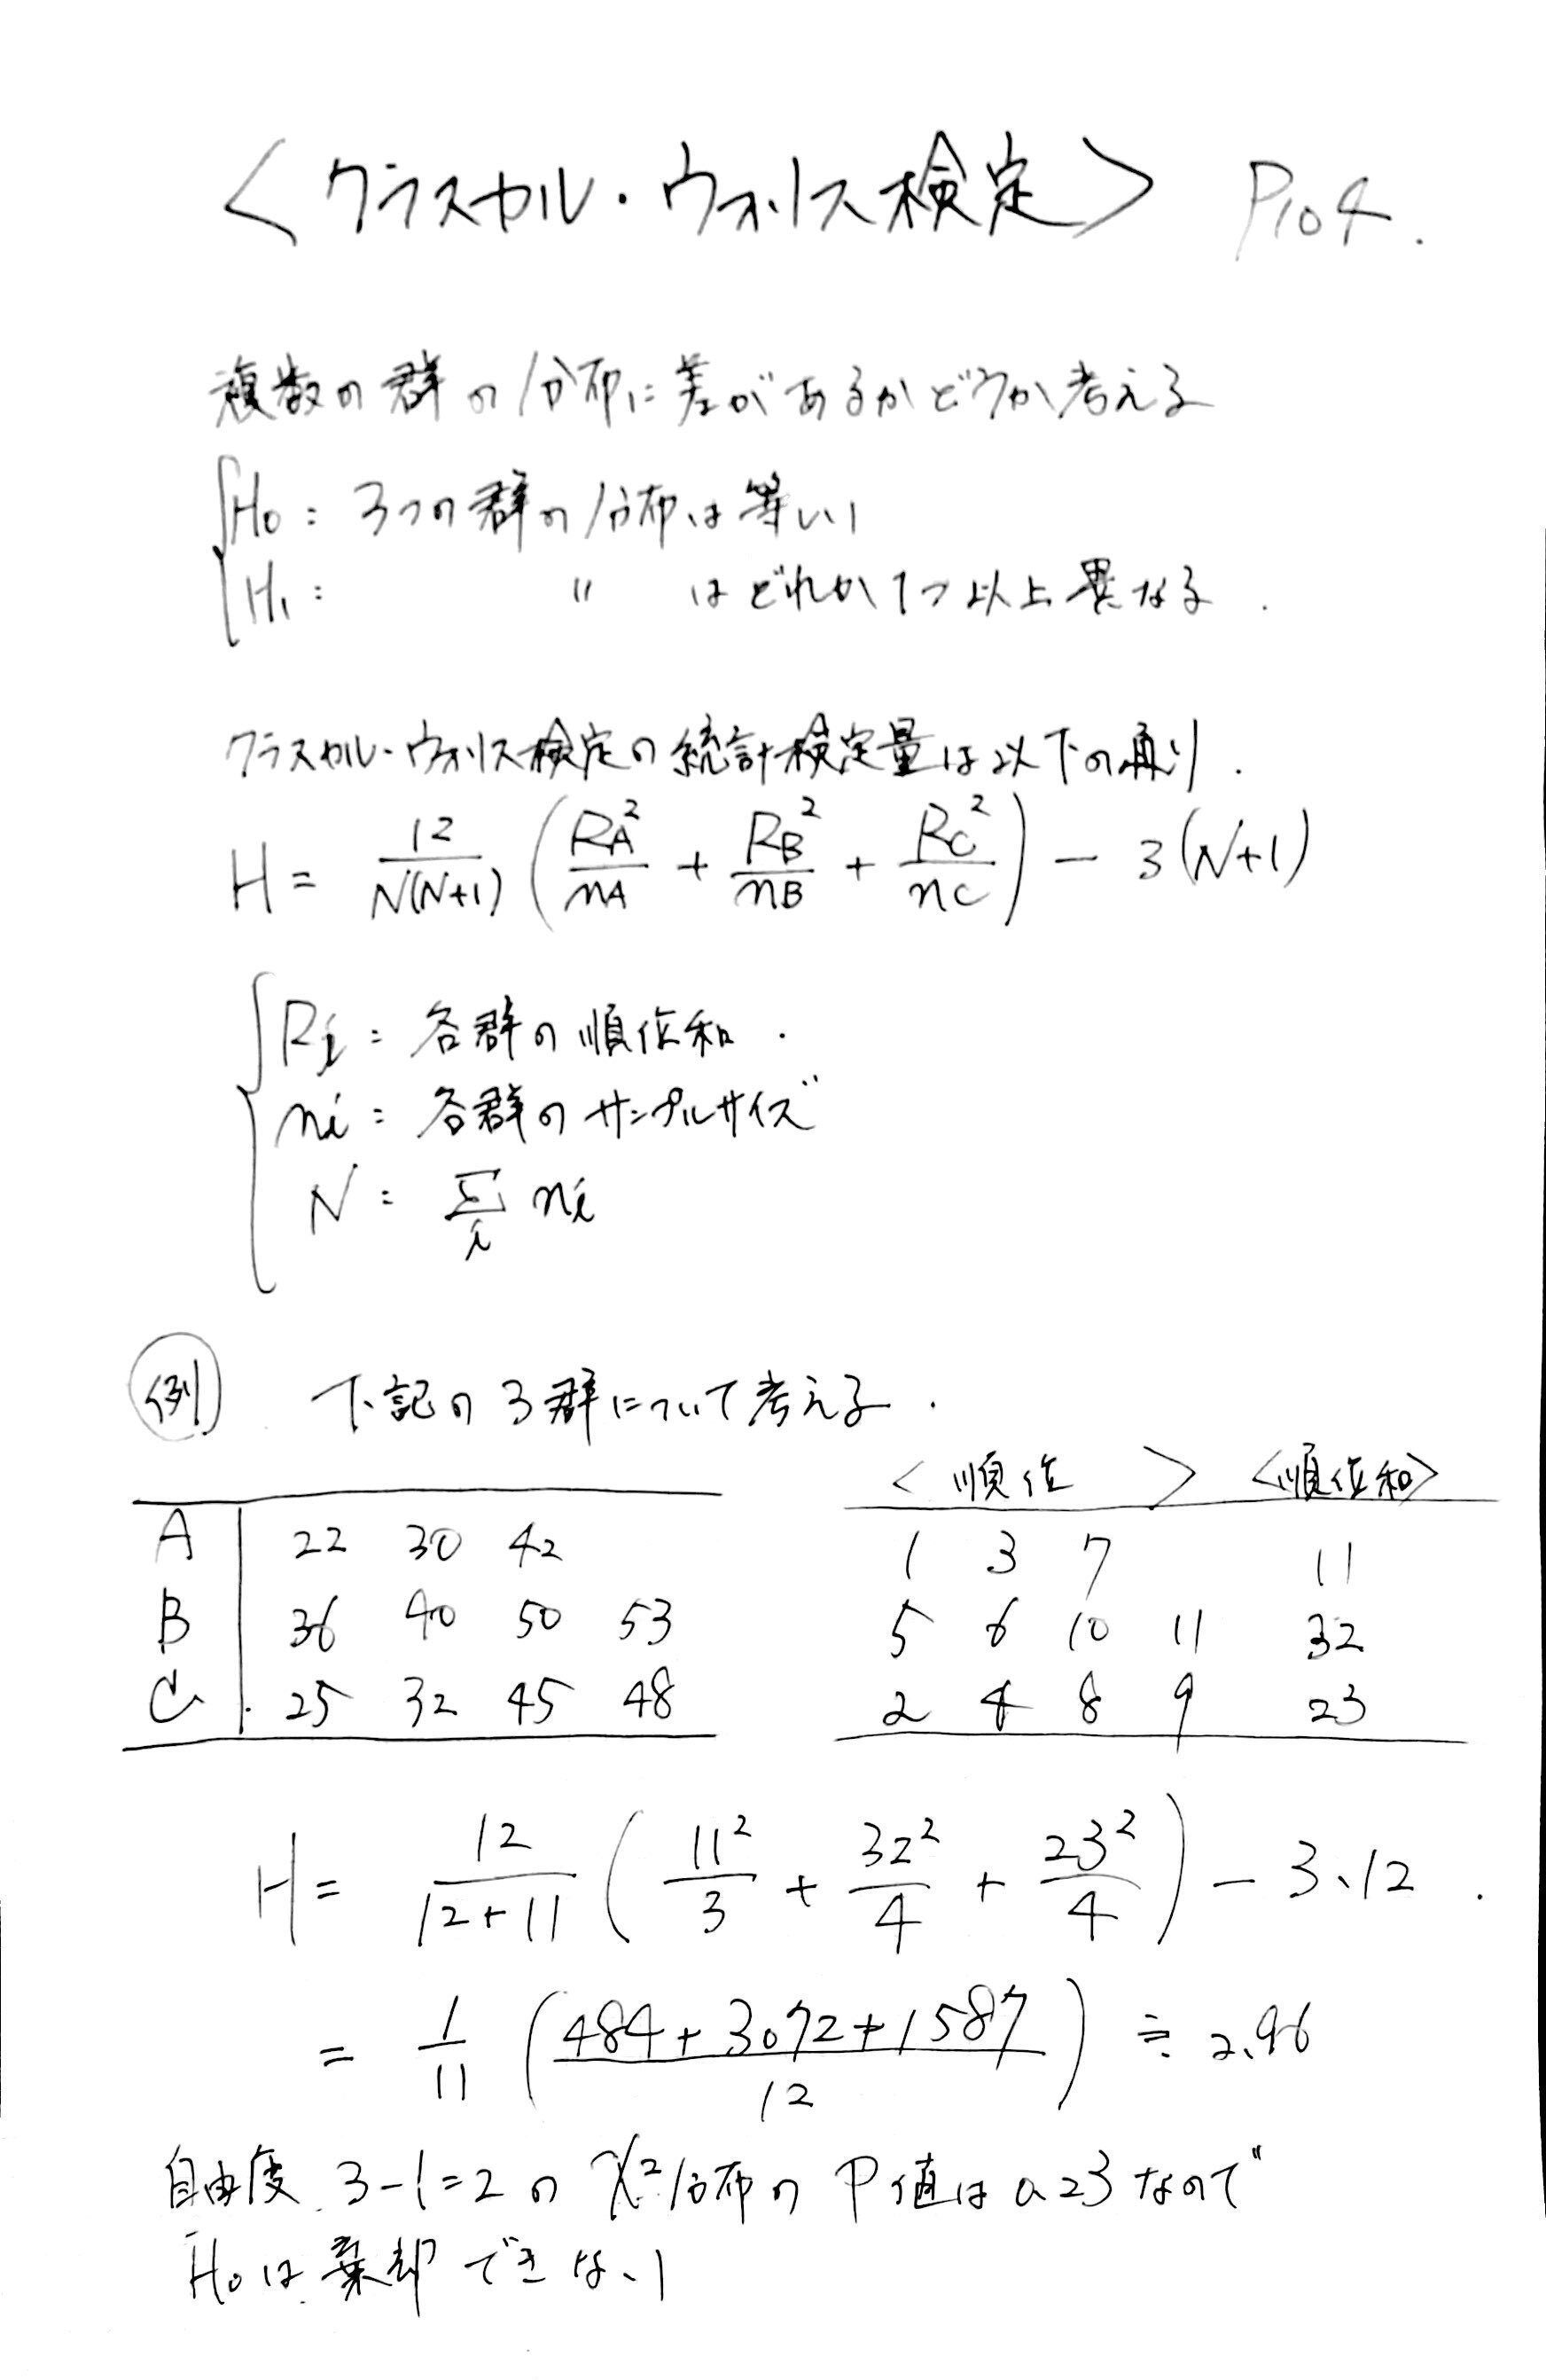 〈クラスカル・ウォリス検定〉 P104.
複数の群の分布に差があるかどうか考える
H0 : 3つの群の分布は等しい
H1 : 〃 はどれか1つ以上異なる.
クラスカル・ウォリス検定の統計検定量は以下の通り.
H = 12/N(N+1) (RA²/nA + RB²/nB + RC²/nC) - 3(N+1)
Ri : 各群の順位和.
ni : 各群のサンプルサイズ
N : Σi ni
例 下記の3群について考える.
<順位> <順位和>
A 22 30 42 1 3 7 11
B 36 40 50 53 5 6 10 11 32
C 25 32 45 48 2 4 8 9 23
H = 12/12+11 (11²/3 + 32²/4 + 23²/4) - 3、12.
= 1/11 (484+3072+1587/12) ≒ 2.96
自由度 3-1=2 の χ²分布の P値は 0.23 なので
H0は棄却できない